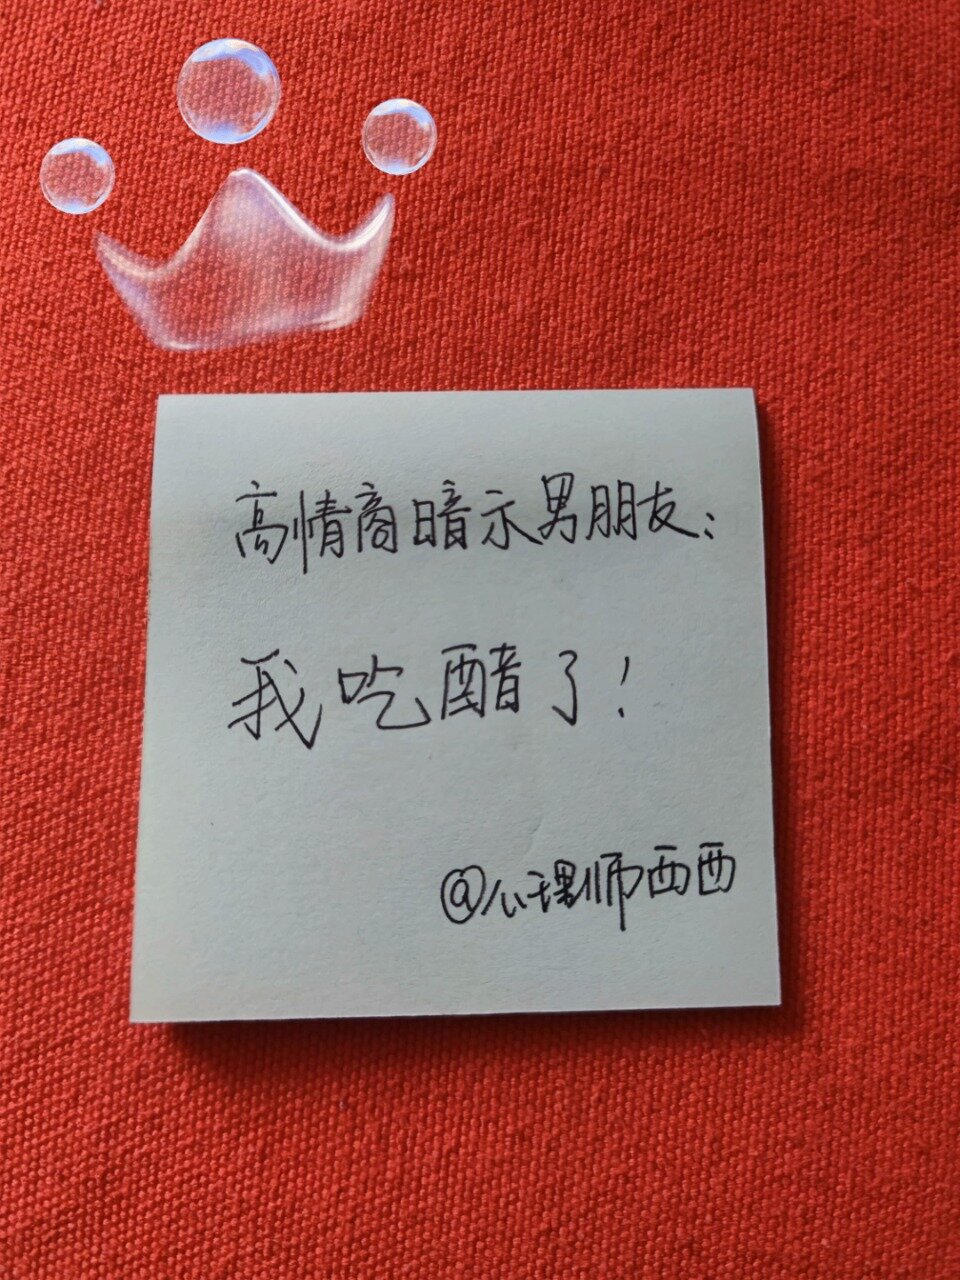 高情商暗示男朋友：
我吃醋了！
@心理师西西